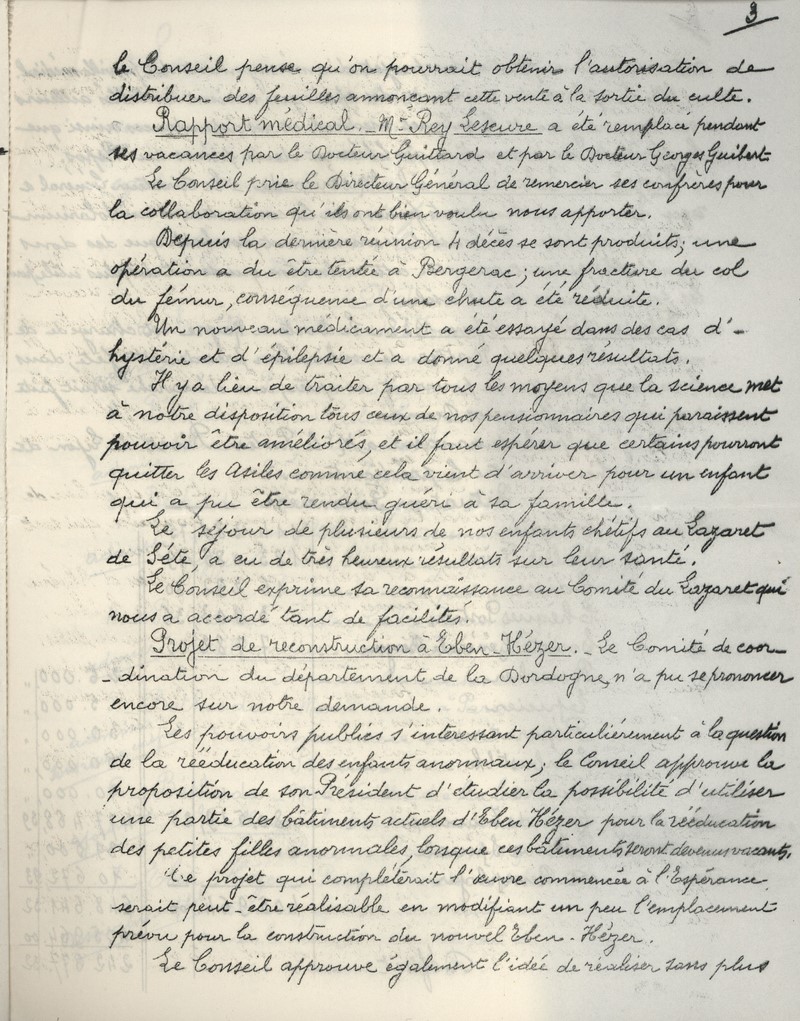 3
le Conseil pense qu'on pourrait obtenir l'autorisation de
distribuer des feuilles annonçant cette vente à la sortie du culte.
Rapport médical. _ Mr Rey Lescure a été remplacé pendant
ses vacances par le Docteur Guillard et par le Docteur Georges Guibert.
Le Conseil prie le Directeur Général de remercier ses confrères pour
la collaboration qu'ils ont bien voulu nous apporter.
Depuis la dernière réunion 4 décès se sont produits; une
opération a du être tentée à Bergerac; une fracture du col
du fémur, conséquence d'une chute a été réduite.
Un nouveau médicament a été essayé dans des cas d'-
hystérie et d'épilepsie et a donné quelques résultats.
Il y a lieu de traiter par tous les moyens que la science met
à notre disposition tous ceux de nos pensionnaires qui paraissent
pouvoir être améliorés, et il faut espérer que certains pourront
quitter les Asiles comme cela vient d'arriver pour un enfant
qui a pu être rendu guéri à sa famille.
Le séjour de plusieurs de nos enfants chétifs au Lazaret
de Sète, a eu de très heureux résultats sur leur santé.
Le Conseil exprime sa reconnaissance au Comité du Lazaret qui
nous a accordé tant de facilités.
Projet de reconstruction à Eben-Hézer. _ Le Comité de coor-
-dination du département de la Dordogne, n'a pu se prononcer
encore sur notre demande.
Les pouvoirs publics s'interessant particuliérement à la question
de la rééducation des enfants anormaux; le Conseil approuve la
proposition de son Président d'étudier la possibilité d'utiliser
une partie des bâtiments actuels d'Eben Hézer pour la rééducation
des petites filles anormales, lorsque ces bâtiments seront devenus vacants.
Ce projet qui complèterait l'œuvre commencée à l'Espérance
serait peut-être réalisable en modifiant un peu l'emplacement
prévu pour la construction du nouvel Eben-Hézer.
Le Conseil approuve également l'idée de réaliser sans plus